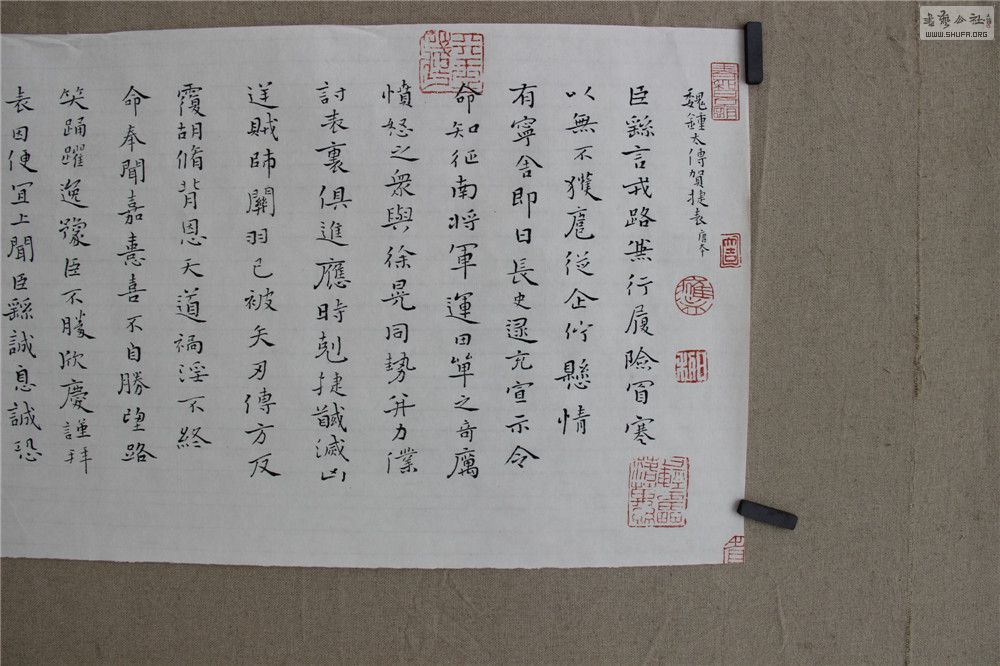 魏鍾太傅賀捷表 唐本
臣繇言戎路兼行履險冒寒
以無不獲扈從企佇懸情
有寧舍即日長史逯充宣示令
命知征南将軍運田單之奇厲
憤怒之衆與徐晃同勢并力僕
討表裏俱進應時剋捷馘滅凶
逆賊帥關羽已被矢刃傅方反
覆胡脩背恩天道禍淫不終
命奉聞嘉憙喜不自勝望路
笑踊躍逸豫臣不勝欣慶謹拜
表因便冝上聞臣繇誠惶誠恐
書藝公社
WWW.SHUFA.ORG